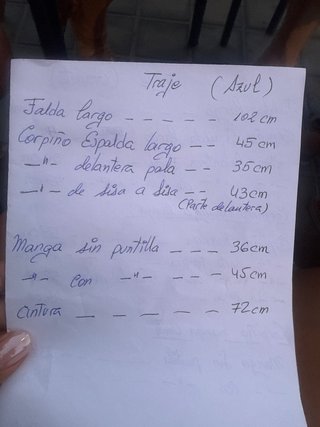 Traje (Azul)
Falda largo - - - - - 102 cm
Corpiño Espalda largo - - 45 cm
—"— delantera pala - - 35 cm
—"— de sisa a sisa - - 43 cm
(Parte delantera)
Manga sin puntilla - - - 36 cm
—"— con —"— - - - 45 cm
Cintura - - - - - 72 cm